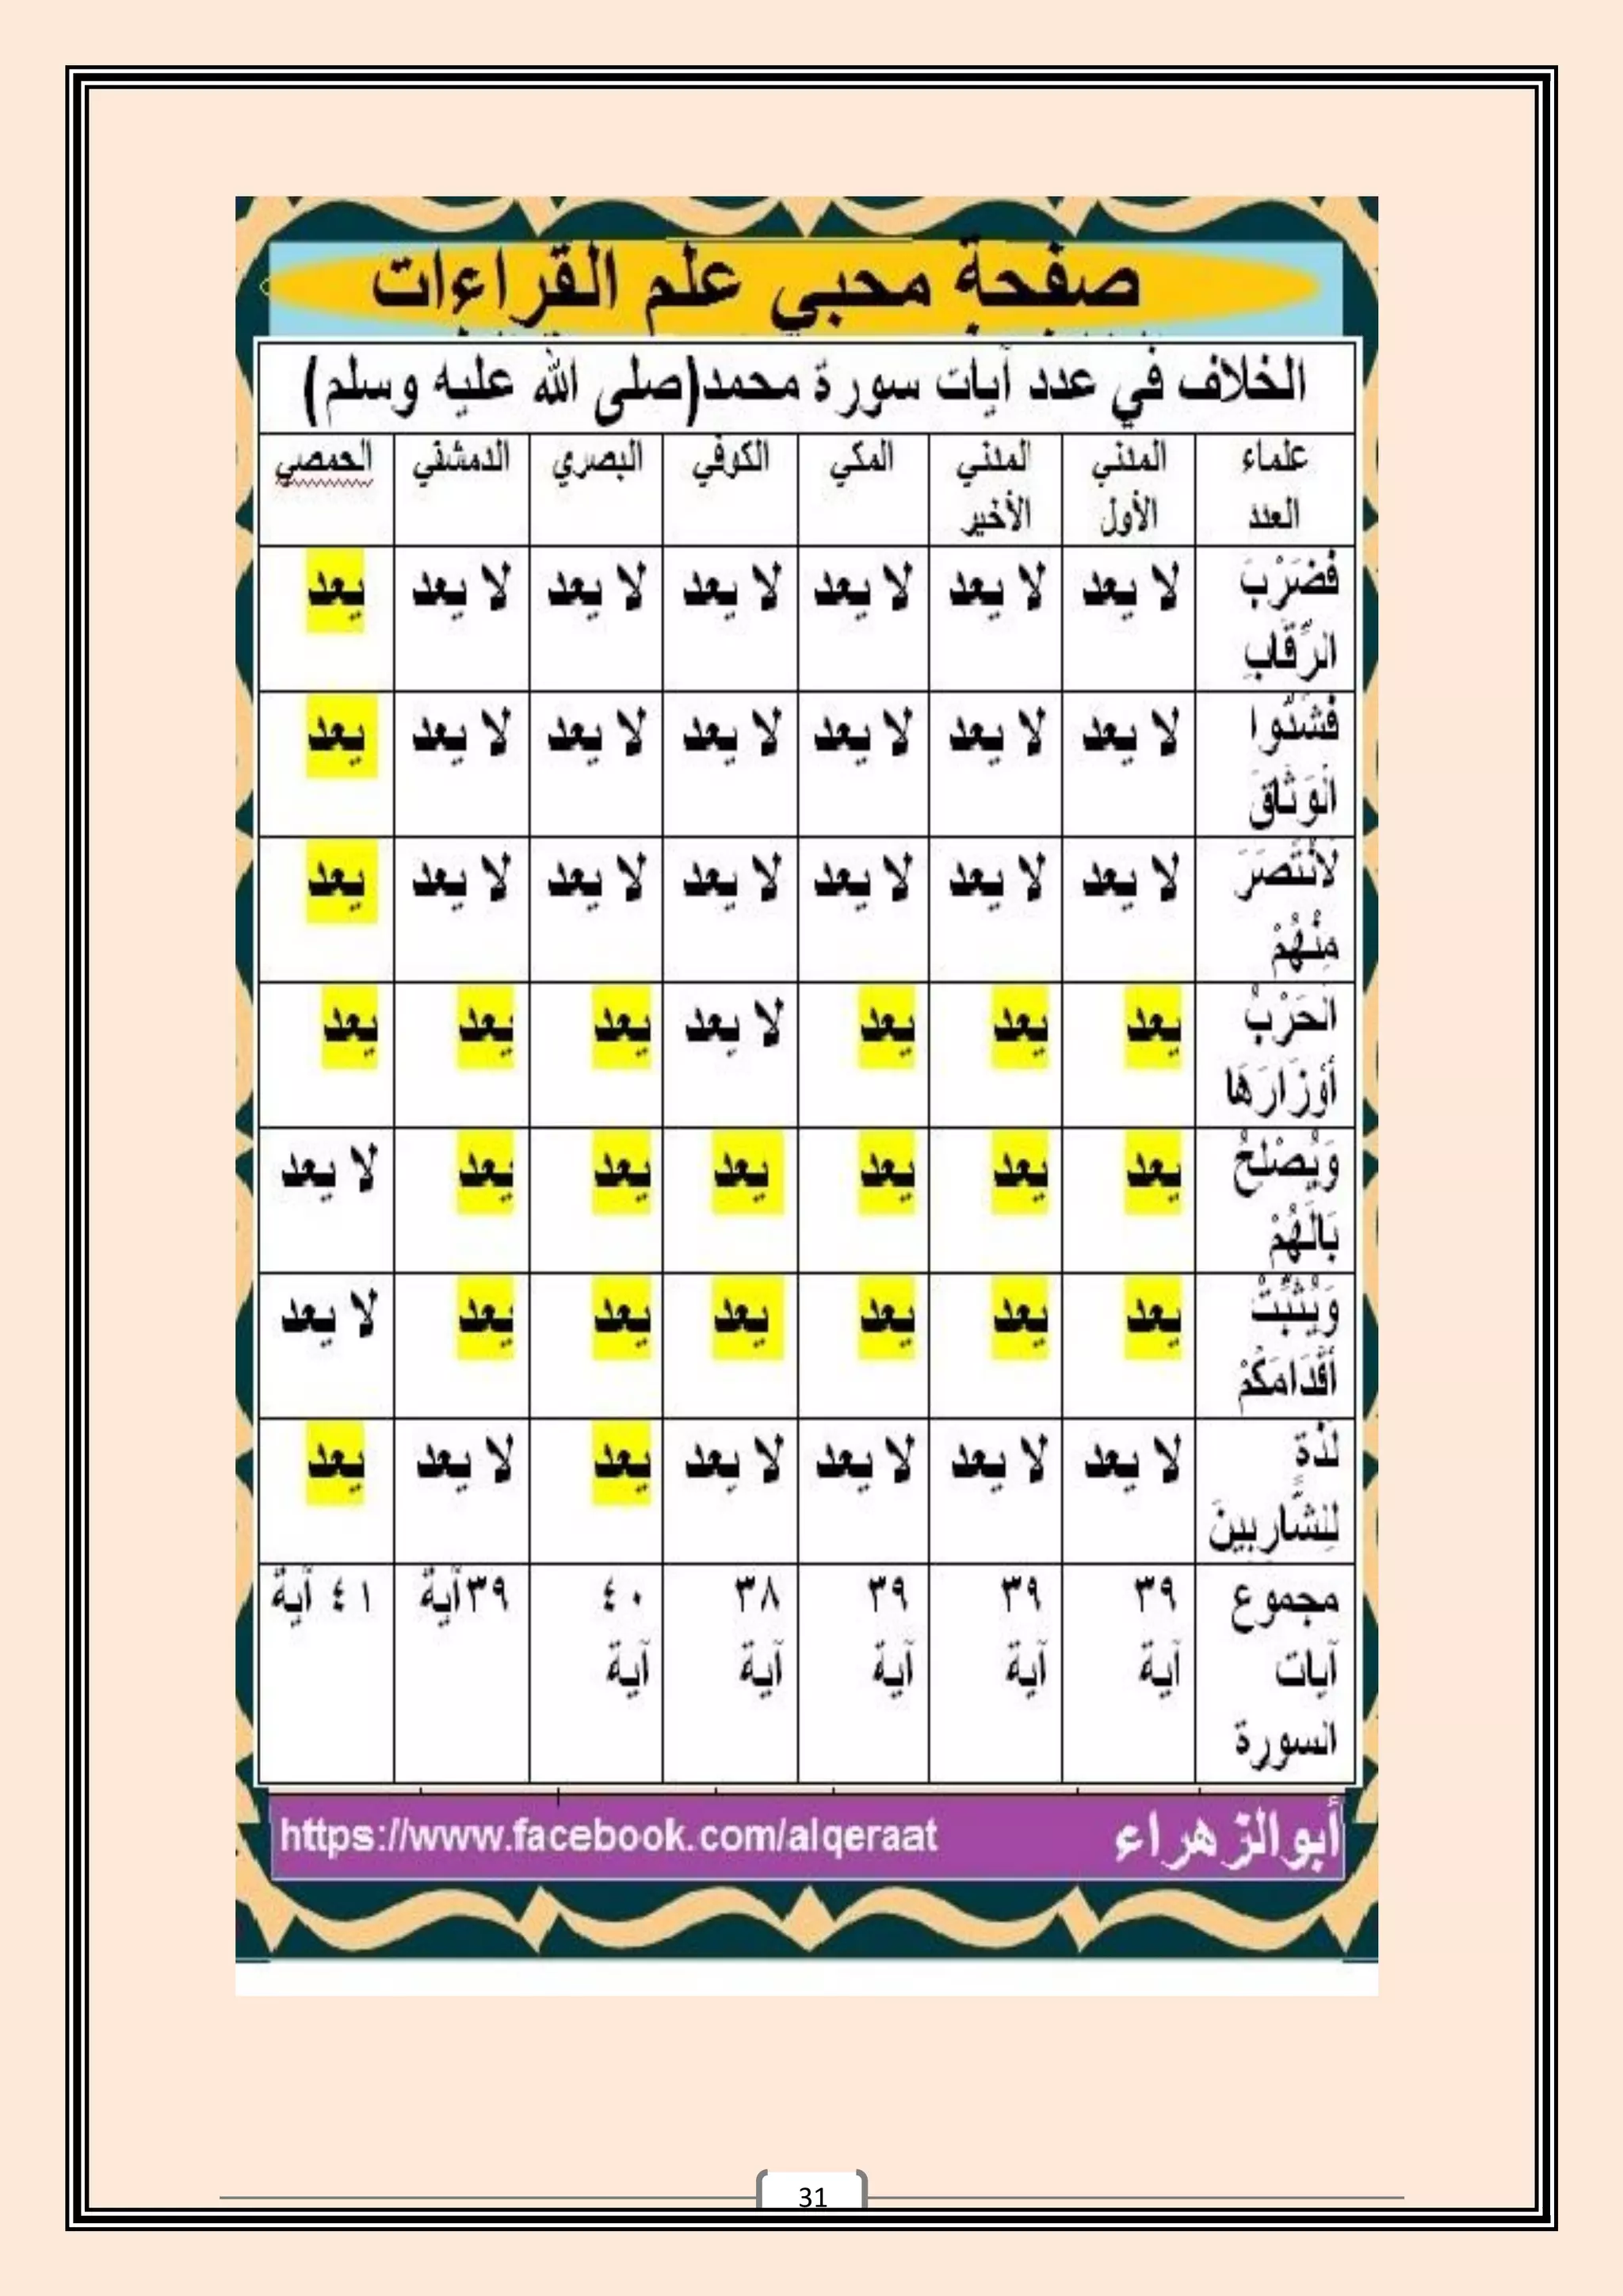 صفحة محبي علم القراءات
الخلاف في عدد آيات سورة محمد(صلى الله عليه وسلم)
علماء العدد	المدني الأول	المدني الأخير	المكي	الكوفي	البصري	الدمشقي	الحمصي
فَضَرْبَ الرِّقَابِ	لا يعد	لا يعد	لا يعد	لا يعد	لا يعد	لا يعد	يعد
فَشُدُّوا الْوَثَاقَ	لا يعد	لا يعد	لا يعد	لا يعد	لا يعد	لا يعد	يعد
لَانْتَصَرَ مِنْهُمْ	لا يعد	لا يعد	لا يعد	لا يعد	لا يعد	لا يعد	يعد
الْحَرْبُ أَوْزَارَهَا	يعد	يعد	يعد	لا يعد	يعد	يعد	يعد
وَيُصْلِحُ بَالَهُمْ	يعد	يعد	يعد	يعد	يعد	يعد	لا يعد
وَيُثَبِّتْ أَقْدَامَكُمْ	يعد	يعد	يعد	يعد	يعد	يعد	لا يعد
لَذَّةٍ لِلشَّارِبِينَ	لا يعد	لا يعد	لا يعد	لا يعد	يعد	لا يعد	يعد
مجموع آيات السورة	٣٩ آية	٣٩ آية	٣٩ آية	٣٨ آية	٤٠ آية	٣٩آية	٤١ آية
أبوالزهراء	https://www.facebook.com/alqeraat
31